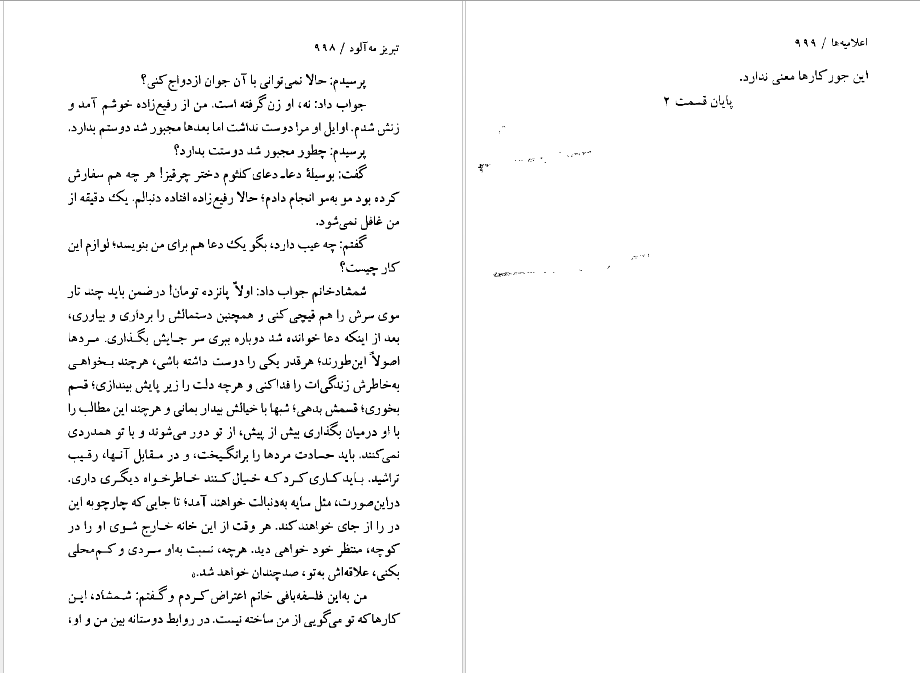 تبریز مه‌آلود / ۹۹۸
پرسیدم: حالا نمی‌توانی با آن جوان ازدواج کنی؟
جواب داد: نه، او زن گرفته است. من از رفیع‌زاده خوشم آمد و
زنش شدم. اوایل او مرا دوست نداشت اما بعدها مجبور شد دوستم بدارد.
پرسیدم: چطور مجبور شد دوستت بدارد؟
گفت: بوسیلهٔ دعا. دعای کلثوم دختر چرقیز! هر چه هم سفارش
کرده بود مو به‌مو انجام دادم؛ حالا رفیع‌زاده افتاده دنبالم. یک دقیقه از
من غافل نمی‌شود.
گفتم: چه عیب دارد، بگو یک دعا هم برای من بنویسد؛ لوازم این
کار چیست؟
شمشادخانم جواب داد: اولاً پانزده تومان! درضمن باید چند تار
موی سرش را هم قیچی کنی و همچنین دستمالش را برداری و بیاوری،
بعد از اینکه دعا خوانده شد دوباره ببری سر جایش بگذاری. مردها
اصولاً این‌طورند؛ هرقدر یکی را دوست داشته باشی، هرچند بخواهی
به‌خاطرش زندگی‌ات را فدا کنی و هرچه دلت را زیر پایش بیندازی؛ قسم
بخوری؛ قسمش بدهی؛ شبها با خیالش بیدار بمانی و هرچند این مطالب را
با او درمیان بگذاری بیش از پیش، از تو دور می‌شوند و با تو همدردی
نمی‌کنند. باید حسادت مردها را برانگیخت، و در مقابل آنها، رقیب
تراشید. باید کاری کرد که خیال کنند خاطرخواه دیگری داری.
دراین‌صورت، مثل سایه به‌دنبالت خواهند آمد؛ تا جایی که چارچوبه این
در را از جای خواهند کند. هر وقت از این خانه خارج شوی او را در
کوچه، منتظر خود خواهی دید. هرچه، نسبت به‌او سردی و کم‌محلی
بکنی، علاقه‌اش به‌تو، صدچندان خواهد شد.»
من به‌این فلسفه‌بافی خانم اعتراض کردم و گفتم: شمشاد، این
کارها که تو می‌گویی از من ساخته نیست. در روابط دوستانه بین من و او،
اعلامیه‌ها / ۹۹۹
این جور کارها معنی ندارد.
پایان قسمت ۲